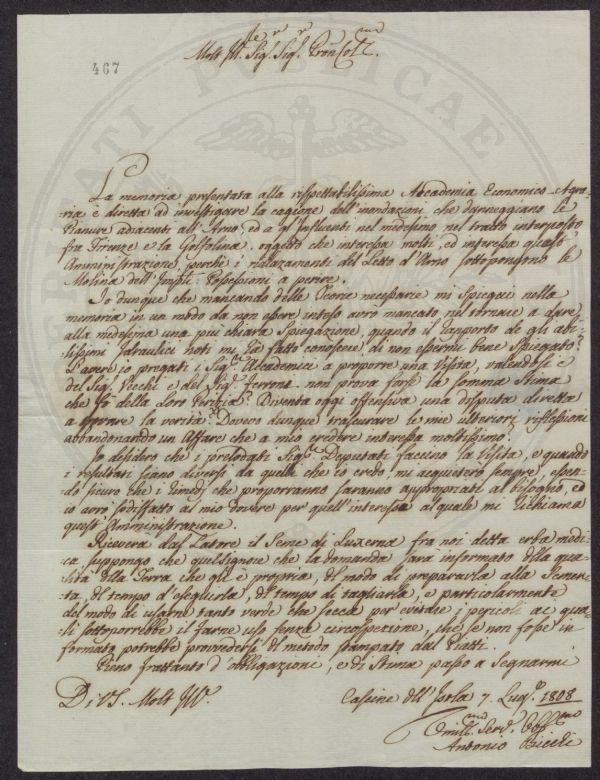 467
Molt Ill.re Sig.r Sig.r Pron Col.mo
La memoria presentata alla rispettabilissima Accademia Economico-Agra-
ria è diretta ad investigare la cagione dell'inondazioni che danneggiano le
Pianure adiacenti all'Arno, ed a gl'Influenti nel medesimo nel tratto interposto
fra Firenze e la Golfolina. oggetto che interessa molti, ed interessa questa
Amministrazione, perchè i rialzamenti del Letto d'Arno sottopongono le
Molina dell'Imp: Possessioni a perire.
Io dunque che mancando delle Teorie necessarie mi spiegai nella
memoria in un modo da non essere inteso avrò mancato nel tornare a dare
alla medesima una più chiara Spiegazione, quando il rapporto de gli abi-
lissimi Idraulici noti mi ha fatto conoscere di non essermi bene Spiegato?
L'avere io pregati i Sig.ri Accademici a proporre una Visita, valendosi e
del Sig. Vecchi e del Sig. Ferroni non prova forse la somma Stima
che fò della Loro Perizia? Diventa oggi offensiva una disputa diretta
a trovare la verità? Dovevo dunque trascurare le mie ulteriori riflessioni
abbandonando un affare che a mio credere interessa moltissimo?
Io desidero che i prelodati Sig.ri Deputati faccino la Visita, e quando
i resultati siano diversi da quelli che io credo, mi acquieterò sempre, essen-
do sicuro che i rimedj che proporranno saranno appropriati al bisogno, ed
io avrò sodisfatto al mio dovere per quell'interesse al quale mi richiama
quest'Amministrazione.
Riceverà dal Latore il Seme di Luzerna fra noi detta erba medi-
ca suppongo che quel Signore che la domanda sarà informato della qua-
lità della Terra che gli è propria, del modo di prepararla alla Sementa
ta, del tempo d'eseguirla, del tempo di tagliarla, e particolarmente
del modo di usarne tanto verde che secca per evitare i pericoli ai qua-
li sottoporrebbe il farne uso senza circospezione, che se non fosse in
formato potrebbe provvedersi del metodo stampato dal Piatti.
Pieno frattanto d'obbligazioni, e di Stima passo a Segnarmi
Di V.S. Molt Ill.re
Cascine dell'Isola 7. Lug.o 1808
Umil.mo Serv. Obb.mo
Antonio